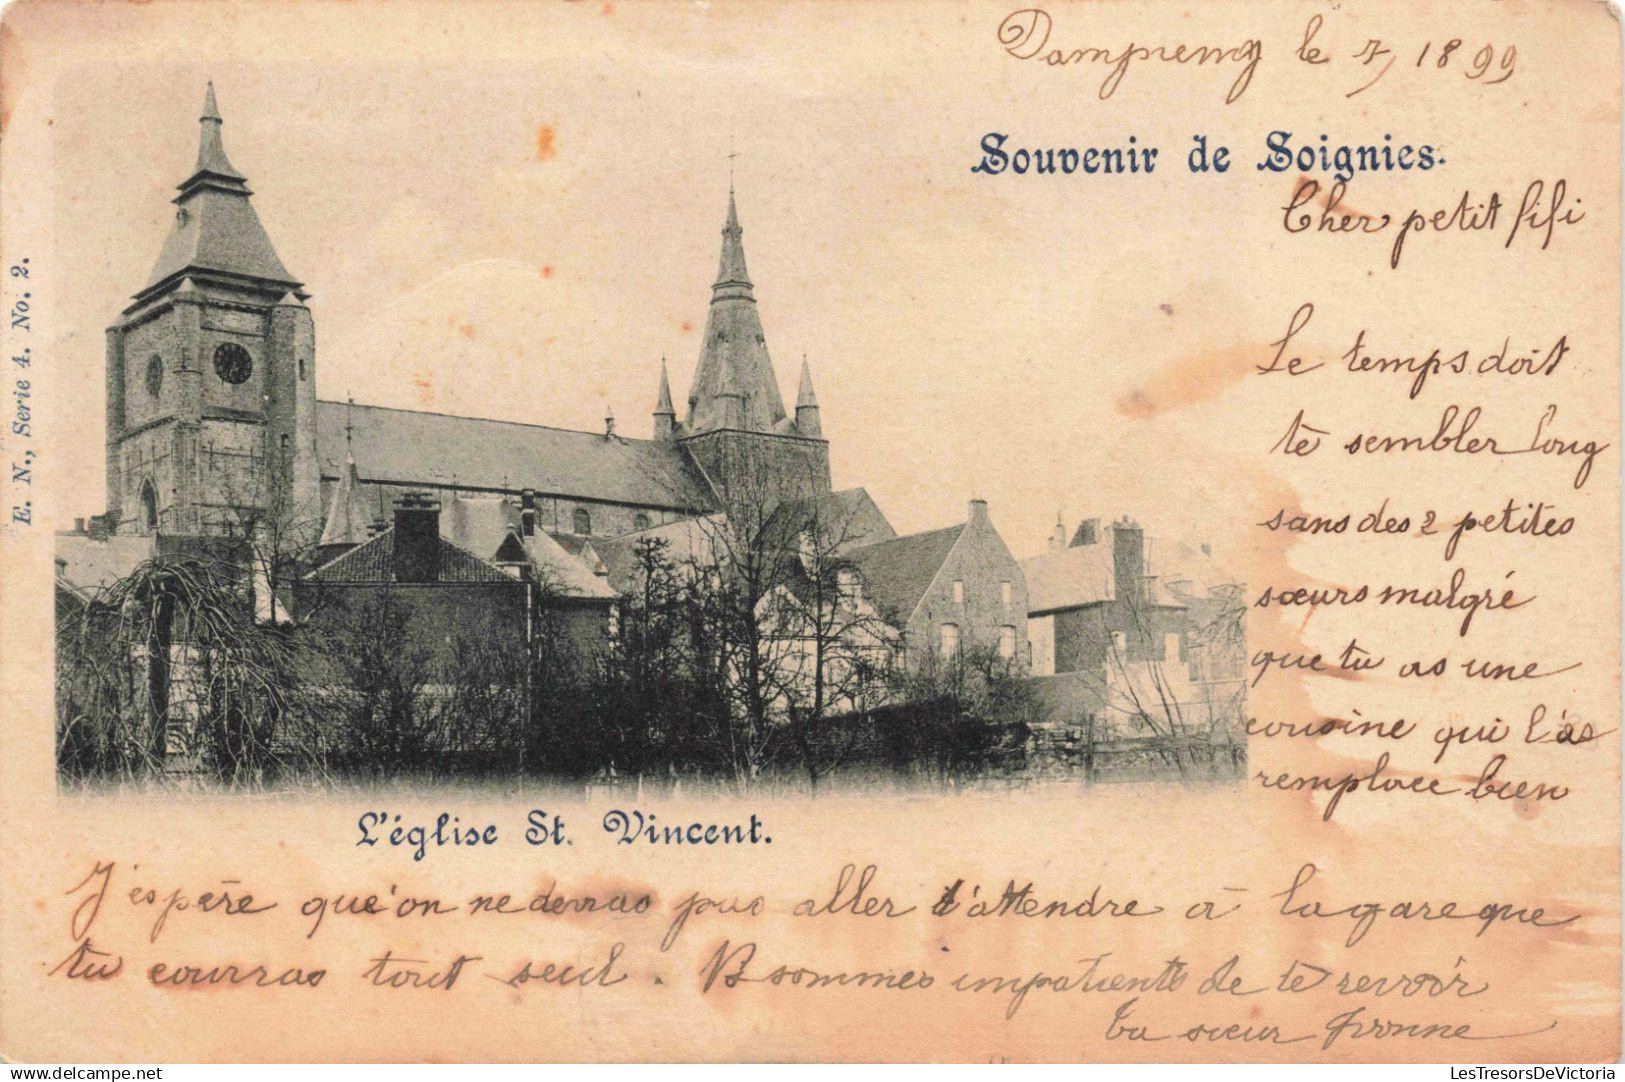 Dampremy le 7, 1899
Souvenir de Soignies.
Cher petit fifi
Le temps doit
te sembler long
sans des 2 petites
sœurs malgré
que tu as une
cousine qui l'as
remplacee bien
E. N., Serie 4. No. 2.
L'église St. Vincent.
J'espère que'on ne devras pas aller t'attendre à la gare que
tu courras tout seul. N sommes impatients de te revoir
ta sœur Yvonne
delcampe.net
LesTresorsDeVictoria